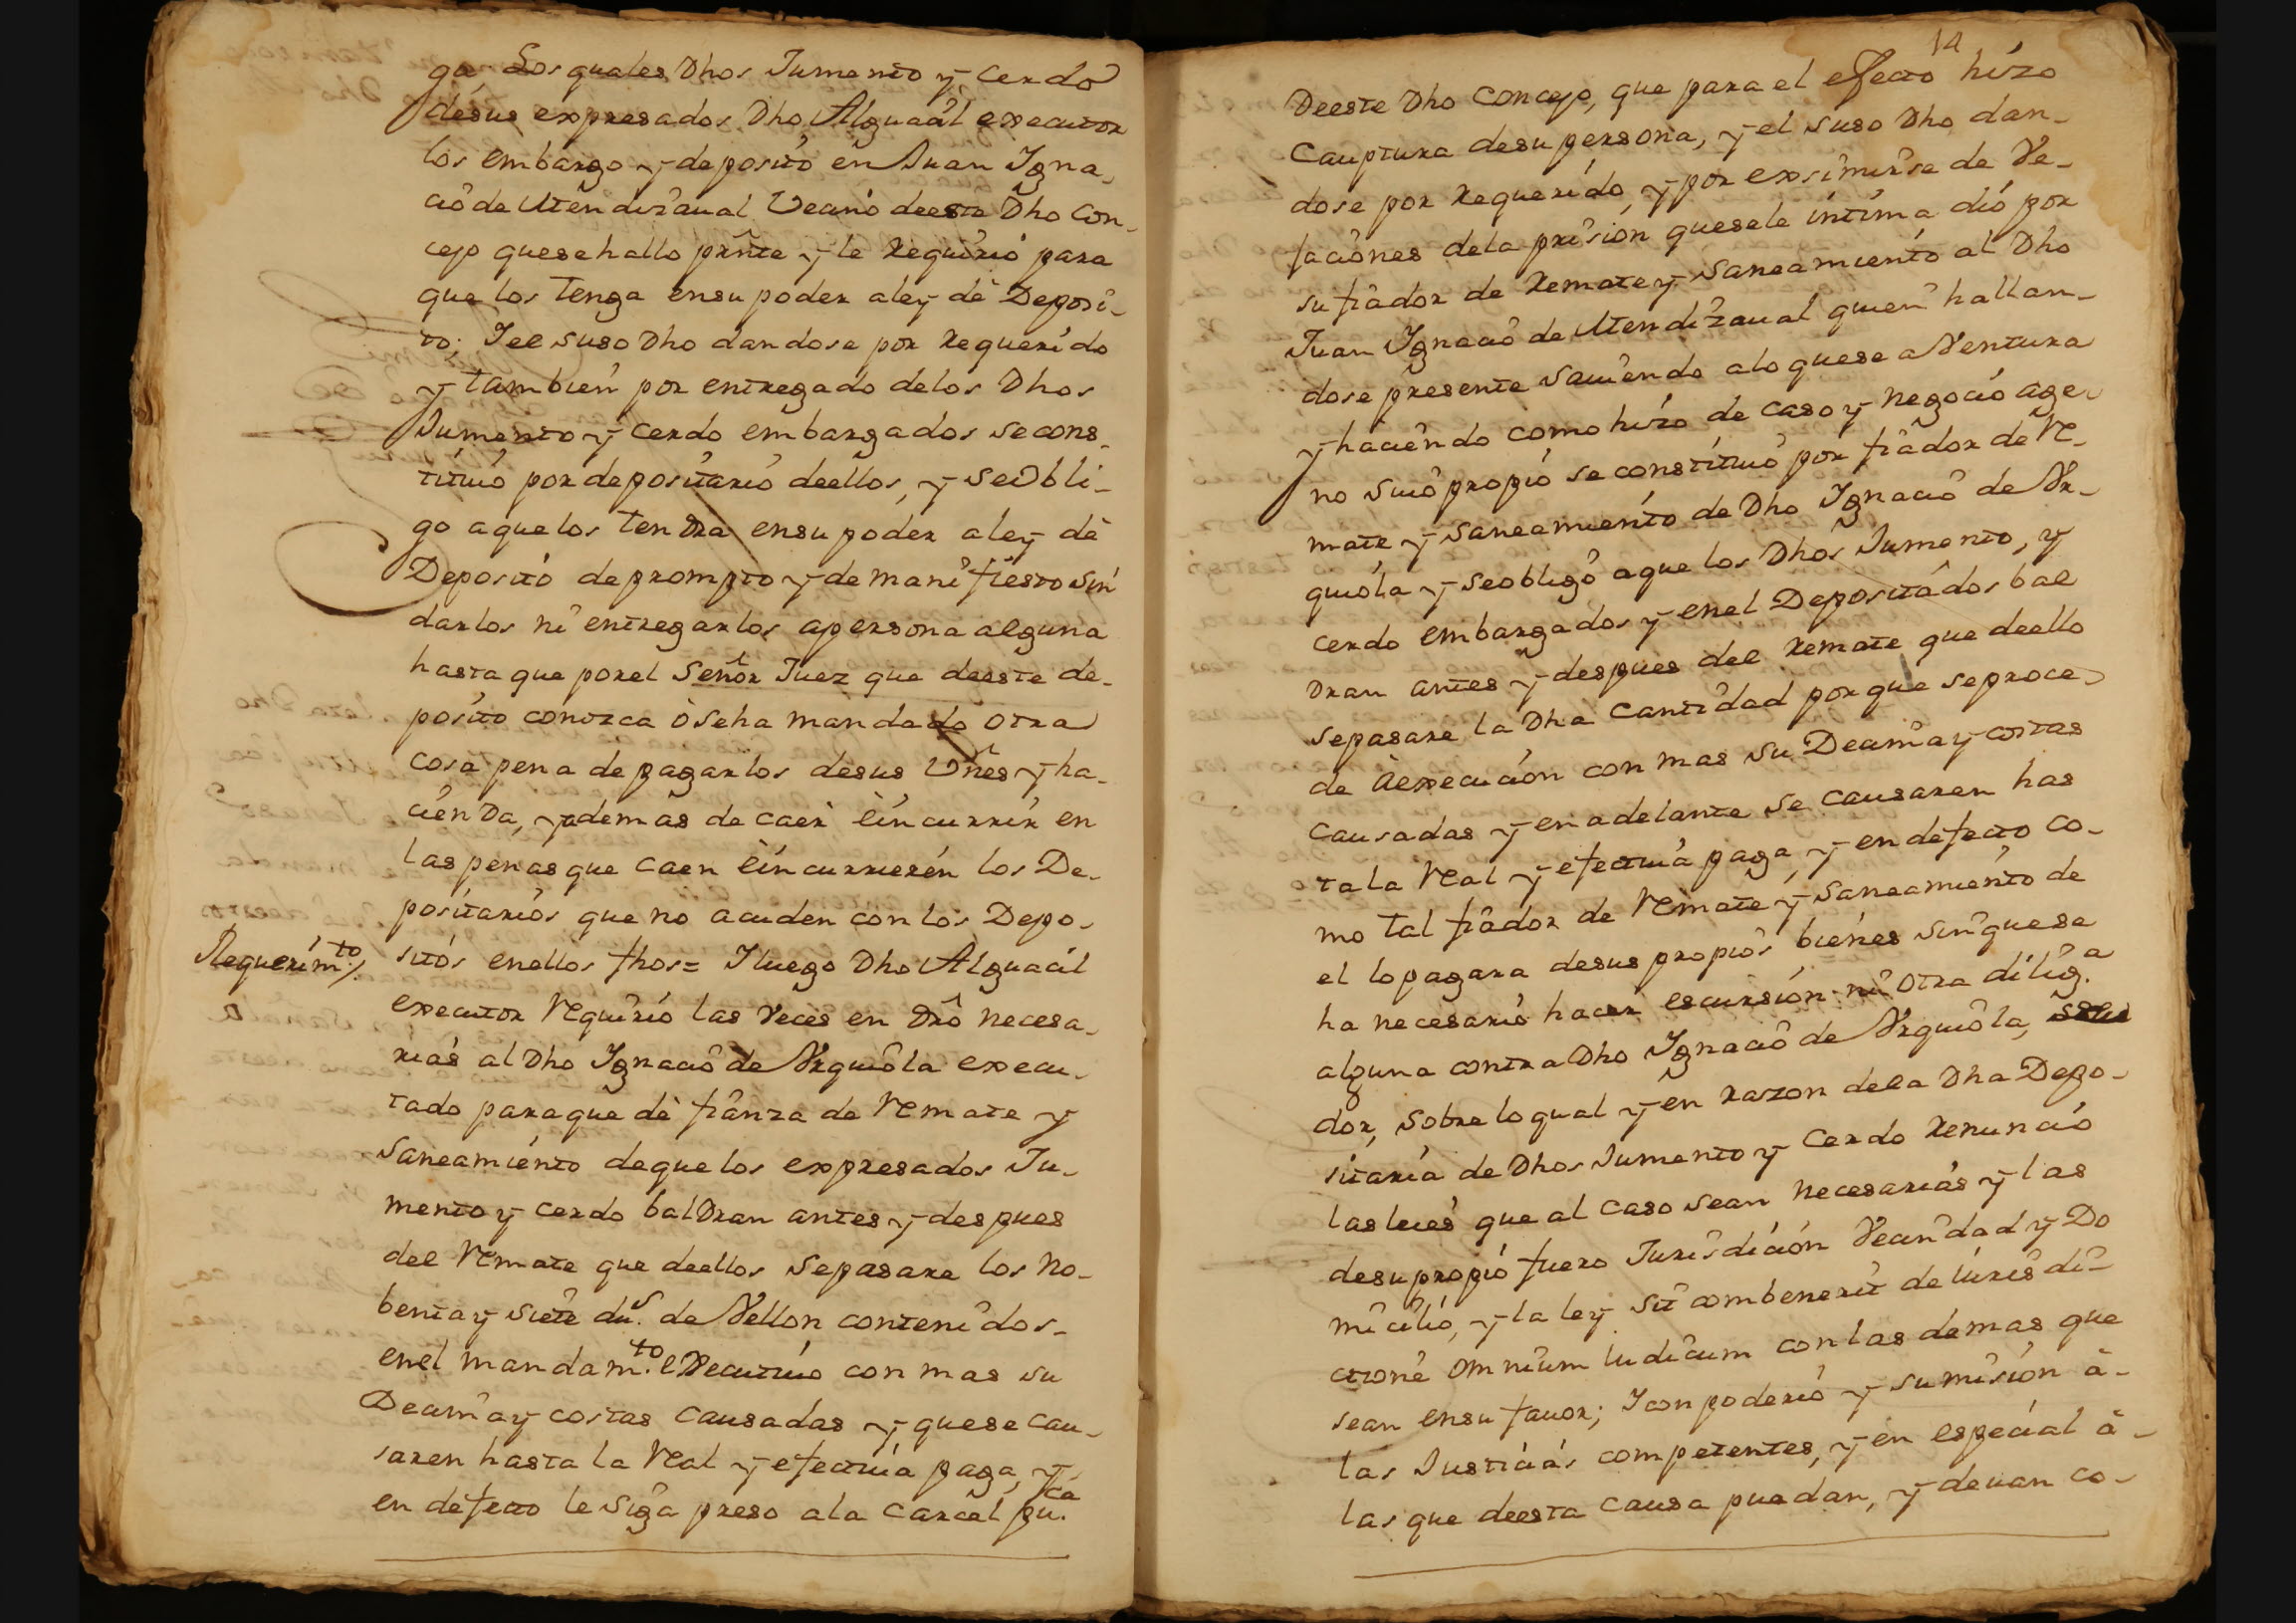 ga. Los quales Dhos Jumento y Cerdo
desus expresados Dho Alguacil executor
los embargo y deposito en Juan Igna-
cio de Mendizaual Vecino deeste Dho Con-
cejo quesehallo prñte y le Requirio para
que los tenga ensu poder aley de Deposi-
to; Iel suso Dho dandose por Requerido
y tambien por entregado delos Dhos
Jumento y Cerdo embargados secons-
tituio por depositario deellos, y seObli-
go aquelos tendra ensu poder aley de
Deposito deprompto y de manifiesto sin
darlos ni entregarlos apersona alguna
hasta que porel Señor Juez que deeste de-
posito conozca òseha mandado otra
cosa pena de pagarlos desus Vñes y ha-
cienda, y ademas de caer èincurrir en
las penas que caen èincurrieren los De-
positarios que no acuden con los Depo-
Requerimto
sitos enellos fhos= I luego Dho Alguacil
executor Requirio las Veces en Dro necesa-
rias al Dho Ignacio de Vrquiola execu-
tado paraque dè fianza de Remate y
Saneamiento dequelos expresados Ju-
mento y cerdo baldran antes y despues
del Remate que deellos sepasare los no-
benta y siete dus. de Vellon contenidos-
enel mandamto. eXecutiuo con mas su
Decima y costas causadas y quese cau-
saren hasta la Real y efectiua paga, y
en defecto le siga preso ala Carcel puca
14
Deeste Dho Concejo, que para el efecto hizo
Cauptura desu persona, y el suso Dho dan-
dose por Requerido, y por exsimirse de Ve-
faciones dela prision quesele intima dió por
su fiador de Remate y Saneamiento al Dho
Juan Ignacio de Mendizaual quien hallan-
dose presente sauiendo aloquese aVentura
y haciendo como hizo de caso y negocio age-
no suio propio se constituio por fiador de Re-
mate y saneamiento de Dho Ignacio de Vr-
quiola y seobligo aque los Dhos Jumento, y
cerdo embargados y enel Depositados bal
dran antes y despues del Remate que deello
sepasare la Dha Cantidad porque seproce-
de àexecucion con mas su Decima y costas
Causadas y en adelante se causaren has
ta la Real y efectiua paga, y en defecto co-
mo tal fiador de Remate y Saneamiento de
el lo pagara desus propios bienes sinquesea
ha necesario hacer escursion ni otra dilig.a
alguna contra Dho Ignacio de Vrquiola,
dor, sobre lo qual y en razon dela Dha Depo-
sitaria de Dhos Jumento y Cerdo Renunció
las leies que al caso sean necesarias y las
desu propio fuero Jurisdicion Vecindad y Do
micilio, y la ley sit combenerit de Iurisdi-
ctione omnium Iudicum con las demas que
sean ensu fauor; I con poderio y sumision à-
las Justicias competentes, y en especial à-
las que deesta causa puedan, y deuan co-